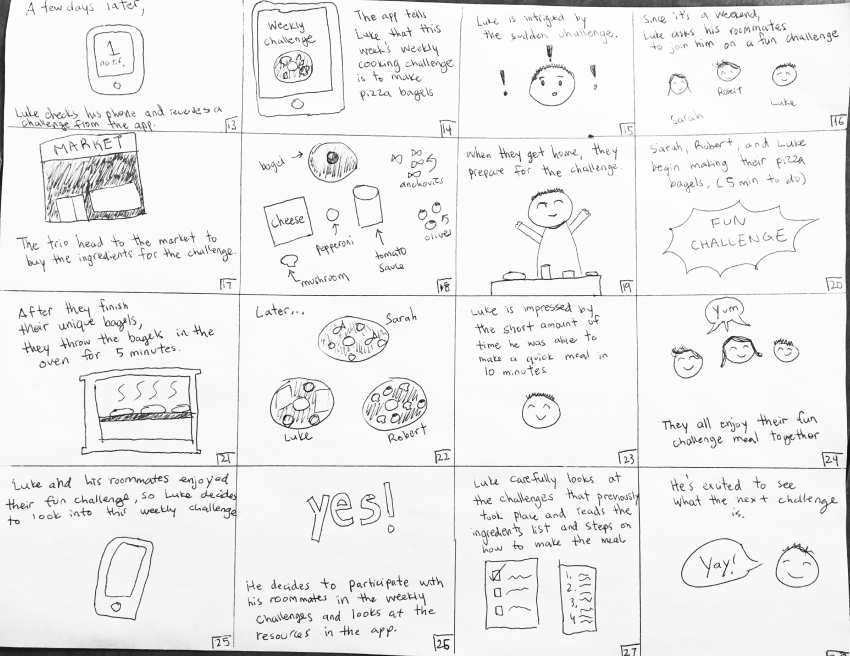 A few days later,
1
notif.
Luke checks his phone and receives a
challenge from the app.
13
Weekly
Challenge
The app tells
Luke that this
week's weekly
cooking challenge
is to make
pizza bagels
14
Luke is intrigued by
the sudden challenge.
! ! !
15
Since it's a weekend,
Luke asks his roommates
to join him on a fun challenge
Sarah
Robert
Luke
16
MARKET
The trio head to the market to
buy the ingredients for the challenge.
17
bagel
anchovies
Cheese
Pepperoni
tomato
sauce
olives
mushroom
18
When they get home, they
prepare for the challenge.
19
Sarah, Robert, and Luke
begin making their pizza
bagels, (5 min to do)
FUN
CHALLENGE
20
After they finish
their unique bagels,
they throw the bagels in the
oven for 5 minutes.
21
Later...
Sarah
Luke
Robert
22
Luke is impressed by
the short amount of
time he was able to
make a quick meal in
10 minutes
23
Yum
They all enjoy their fun
challenge meal together
24
Luke and his roommates enjoyed
their fun challenge, so Luke decides
to look into this weekly challenge
25
yes!
He decides to participate with
his roommates in the weekly
challenges and looks at the
resources in the app.
26
Luke carefully looks at
the challenges that previously
took place and reads the
ingredients list and steps on
how to make the meal
1.
2.
3.
4
27
He's excited to see
what the next challenge
is.
Yay!